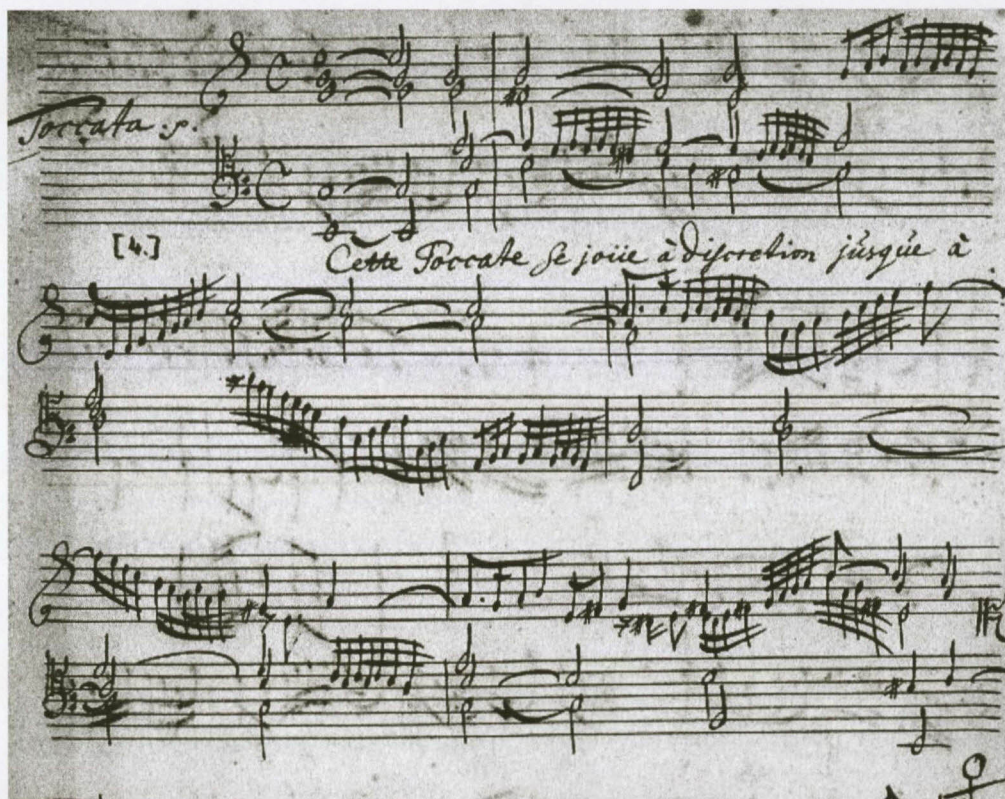 Toccata
[4.]
Cette Toccate se joüe à discretion jusque à